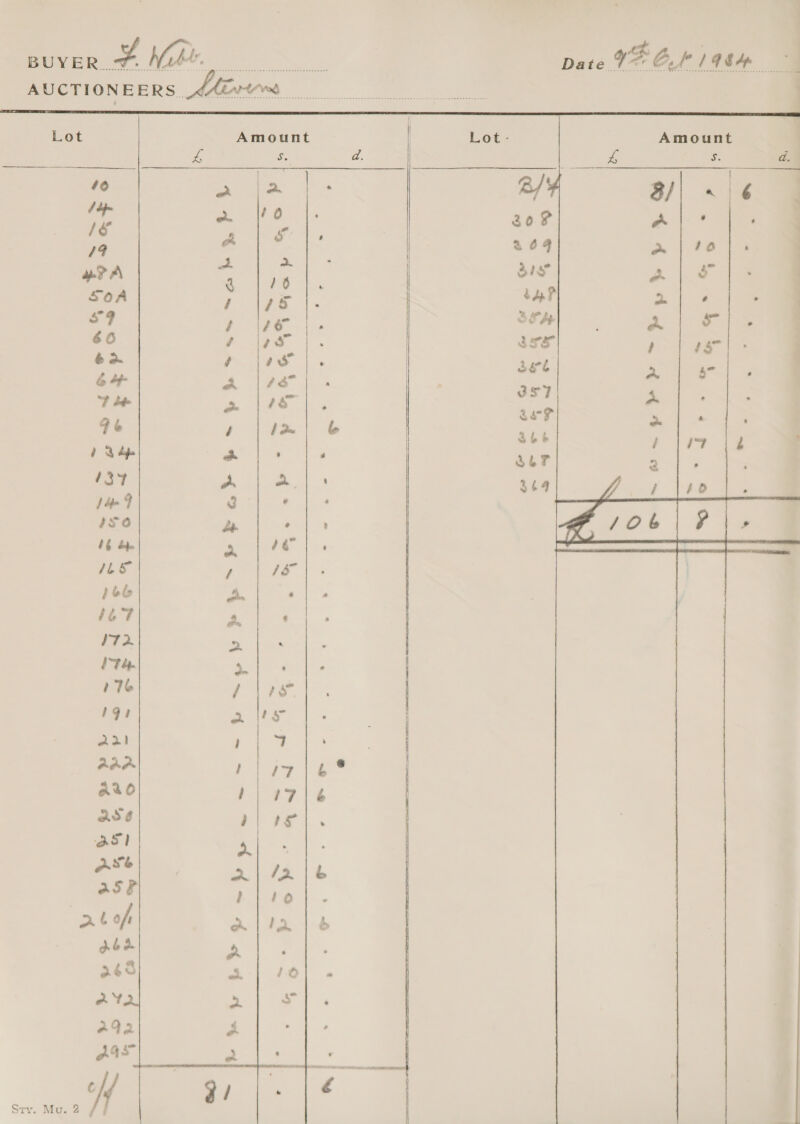 BUYER F. Date 9th Oct 1934
AUCTIONEERS Stevens
Lot Amount Lot Amount
£ s. d. £ s. d.
10 2 2 .
14 2 10 .
18 2 5 .
19 2 2 .
48A 3 10 .
50A 1 15 .
59 1 15 .
60 1 15 .
62 1 15 .
64 2 15 .
74 2 15 .
96 1 12 6
134 2 . .
137 2 2 .
149 3 . .
150 4 . .
164 2 15 .
165 1 15 .
166 2 . .
167 2 . .
172 2 . .
174 2 . .
176 1 15 .
191 2 15 .
221 1 7 .
222 1 17 6
220 1 17 6
250 1 15 .
251 2 . .
256 2 12 6
258 1 10 .
2 12 6
262 2 . .
263 2 10 .
272 2 5 .
292 2 . .
295 2 . .
c/f 81 . 6
Sty. Mu. 2
B/F 81 . 6
308 2 . .
309 2 10 .
315 2 5 .
348 2 . .
354 2 5 .
355 1 15 .
356 2 5 .
357 2 . .
358 2 . .
366 1 17 6
367 2 . .
369 1 10 .
£ 106 8 .